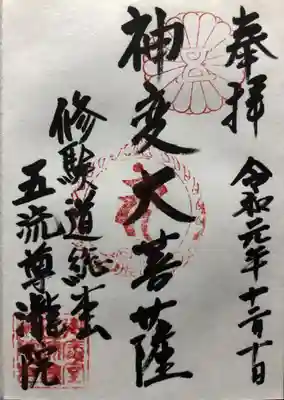 奉拝
令和元年十二月十日
神変大菩薩
修験道総本
五流尊瀧院